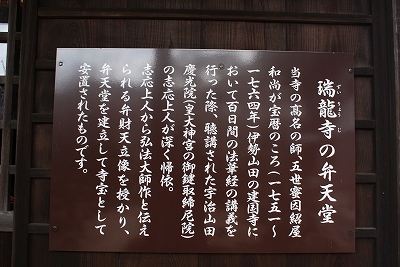 瑞龍寺の弁天堂
ずい りょう じ
当寺の高名の師・五世寧因紹屋
和尚が宝暦のころ(一七五一〜
一七六四年)伊勢山田の建国寺に
おいて百日間の法華経の講義を
行った際、聴講された宇治山田
慶光院(皇大神宮の御鍵取締尼院)
の志応上人が深く帰依。
志応上人から弘法大師作と伝え
られる弁財天立像を授かり、
弁天堂を建立して寺宝として
安置されたものです。